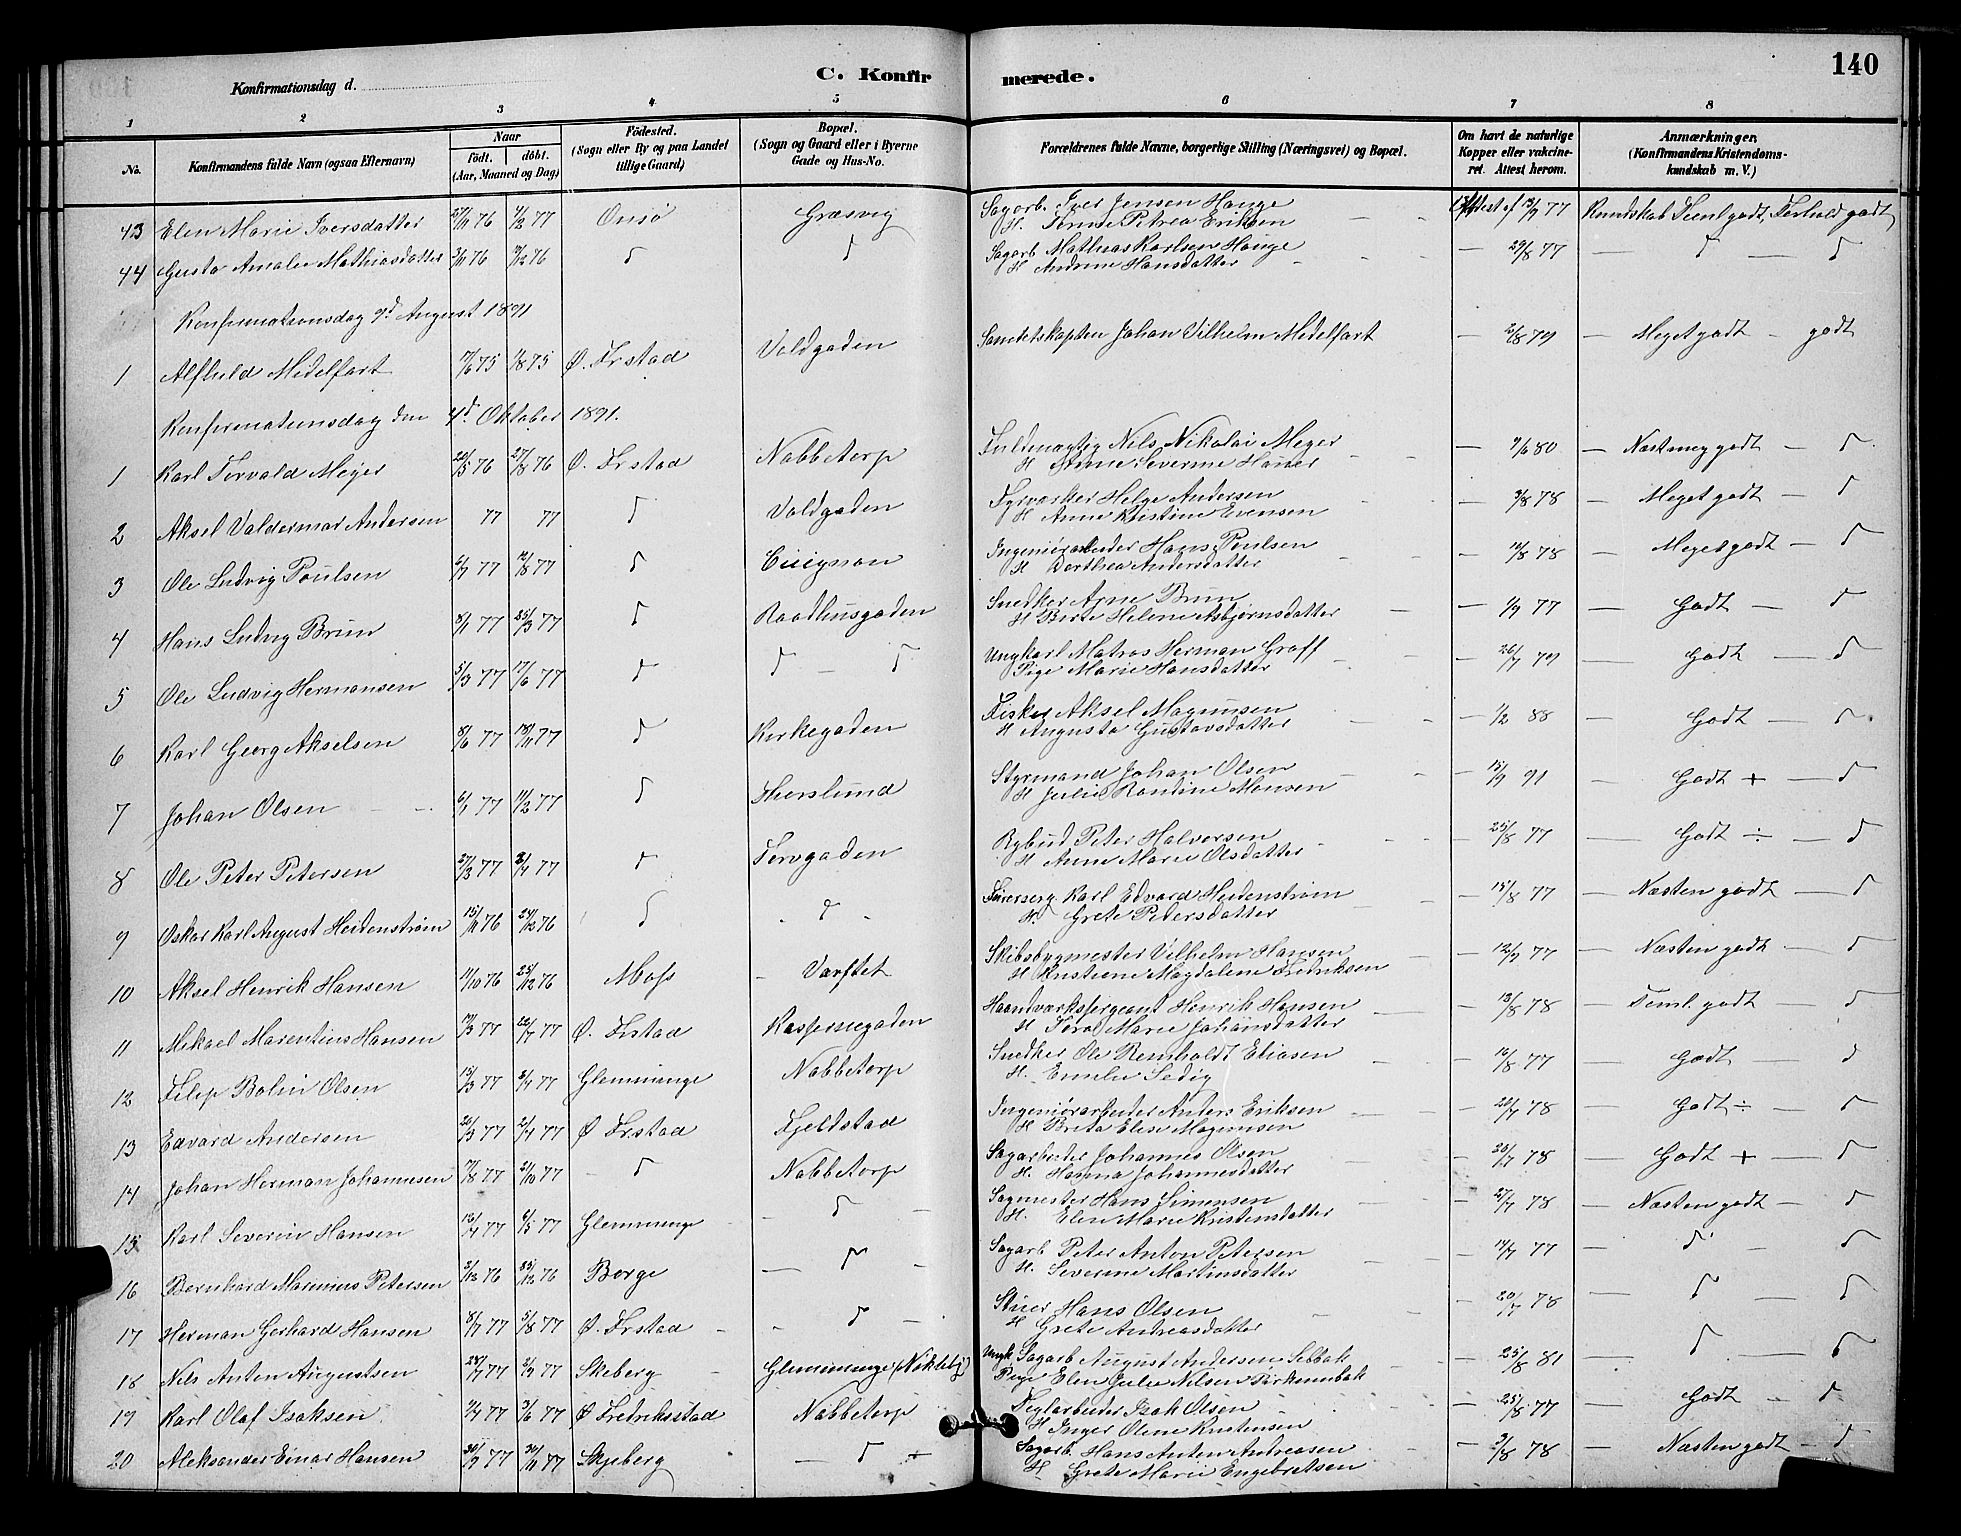 140
Konfirmationsdag d.
C. Konfirmerede.
1 2 3 4 5 6 7 8
No. Konfirmandens fulde Navn (ogsaa Efternavn) Naar født. døbt. (Aar, Maaned og Dag) Födested. (Sogn eller By og paa Landet tillige Gaard) Bopæl. (Sogn og Gaard eller i Byerne Gade og Hus-No. Forældrenes fulde Navne, borgerlige Stilling (Næringsvei) og Bopæl. Om havt de naturlige Kopper eller vakcineret. Attest herom. Anmærkninger, (Konfirmandens Kristendomskundskab m. V.)
43 Elen Marie Iversdatter 27/11 76 4/2 77 Onsø Græsvig Sagarb. Iver Jensen Hauge
H. Petrea Eriksen 77 Kundskab Teml godt, Forhold godt
44 Amalie Mathiasdatter 76 76 Sagarb Mathias Karlsen Hauge
H Andrine Hansdatter — 29/8 77
Konfirmationsdag 9d August 1891
1 Alfhild Midelfart 75 75 Ø. Frstad Voldgaden Johan Vilhelm Midelfart — 2/8 79 — Meget godt – godt
Konfirmationsdag den 4d Oktober 1891.
1 Karl Torvald Meyer 20/5 76 27/8 76 Ø. Frstad Nabbetorp Fuldmægtig Nels Nikolai Meyer
H Severine — 9/6 80 —
2 Aksel Valdermar Andersen 77 77 Voldgaden Helge Andersen
H Anne Kristine Evensen — 3/8 78 — Meget godt
3 Ole Ludvig Poulsen 77 12/8 77 Ingeniørarbeider Hans Poulsen
H Dorthea Andersdatter 78 — Meget godt
4 Hans Ludvig Brun 8/1 77 25/3 77 Raadhusgaden Snedker Arne Brun
H Berte Helene Asbjørnsdatter 77 — Godt
5 Ole Ludvig Hermansen 5/3 77 17/6 77 Ungkarl Matros Herman Graff
Pige Marie Hansdatter — 26/7 79 — Godt
6 Karl Georg Akselsen 8/6 77 18/11 77 Kirkegaden Fisker Aksel Magnusen
H Augusta Gustavsdatter — 1/2 88 — Godt
7 Johan Olsen 6/1 77 11/2 77 Thorslund Styrmand Johan Olsen
H Julie Randine Monsen — 15/9 91 — Godt +
8 Ole Peter Petersen 27/3 77 77 Torvgaden Bybud Peter Halvorsen
H Anne Marie Olsdatter — 25/8 77 — Godt ÷
9 Oskar Karl August Heidenstrøm 15/11 76 24/12 76 Karl Edvard Heidenstrøm
H. Grete Pedersdatter — 15/8 77 — Næsten godt
10 Aksel Henrik Hansen 11/10 76 25/12 76 Moss Værftet Skibsbygmester Vilhelm Hansen
H Kristiene Magdalene Fredriksen — 12/9 77 — Næsten godt
11 Mikael Marentius Hansen 77 22/7 77 Ø. Frstad Haandværksergeant Henrik Hansen
H Marie Johansdatter — 13/8 78 — Teml. godt
12 Filip Bolin Olsen 15/3 77 77 Glemminge Nabbetorp Snedker Ole Reinholdt Eliasen
H. Emilie — 16/8 77 — Godt
13 Edvard Andersen 20/3 77 2/4 77 Ø Frstad Fjeldstad Ingeniørarbeider Anders Eriksen
H Brita Elise Magnusen — 20/7 78 — Godt ÷
14 Johan Herman Johannesen 77 21/10 77 Nabbetorp Sagarbeider Johannes Olsen
H. Hanna Johannesdatter 78 — Godt +
15 Karl Severin Hansen 77 6/5 77 Glemminge Sagmester Hans Simensen
H. Elen Marie Kristensdatter — 27/7 78 — Næsten godt
16 Bernhard Marinius Petersen 3/12 76 25/12 76 Borge Sagarb Peter Anton Petersen
H. Severine Martinsdatter — 14/7 77
17 Herman Gerhard Hansen 8/7 77 5/8 77 Ø. Frstad Hans Olsen
H Grete Andreasdatter — 20/7 78
18 Nils Anton Augustsen 77 2/9 77 Skeberg Glemminge Ungk Sagarb August Andersen
Pige Elen Julie Nilsen — 25/8 81
19 Karl Olaf Isaksen 77 3/6 77 Ø Fredriksstad Nabbetorp Teglarbeider Isak Olsen
H Inger Oline Kristensen — 25/8 77 Godt
20 Aleksander Einar Hansen 30/9 77 30/11 77 Skjeberg Sagarb. Hans Anton Andreasen
H Grete Marie Engebretsen — 3/8 78 — Næsten godt